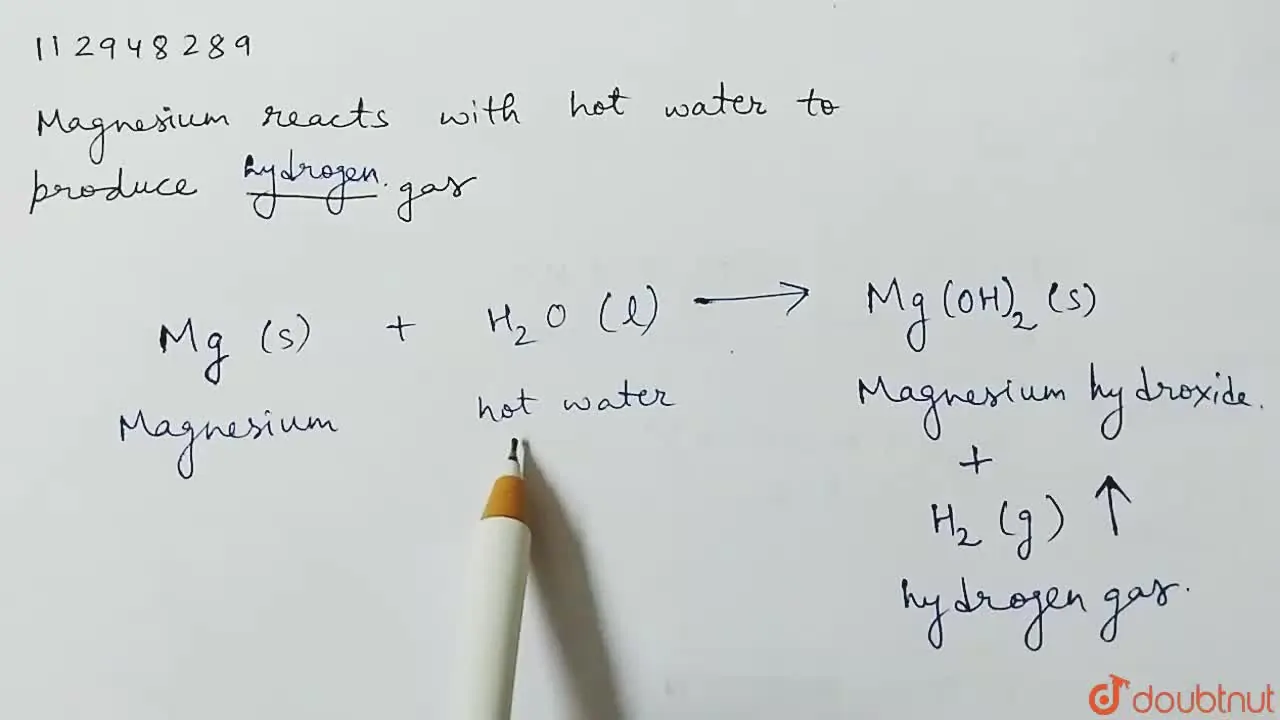 112948289
Magnesium reacts with hot water to
produce hydrogen. gas
Mg (s) + H₂O (l) ⟶ Mg(OH)₂ (s)
Magnesium hot water Magnesium hydroxide.
+
H₂ (g) ↑
hydrogen gas.
doubtnut